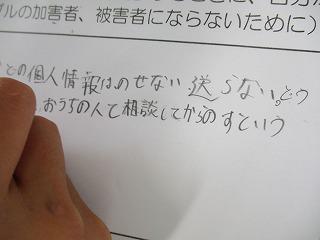 ルの加害者、被害者にならないために)
との個人情報はのせない送らない。どう
おうちの人と相談してからのすという